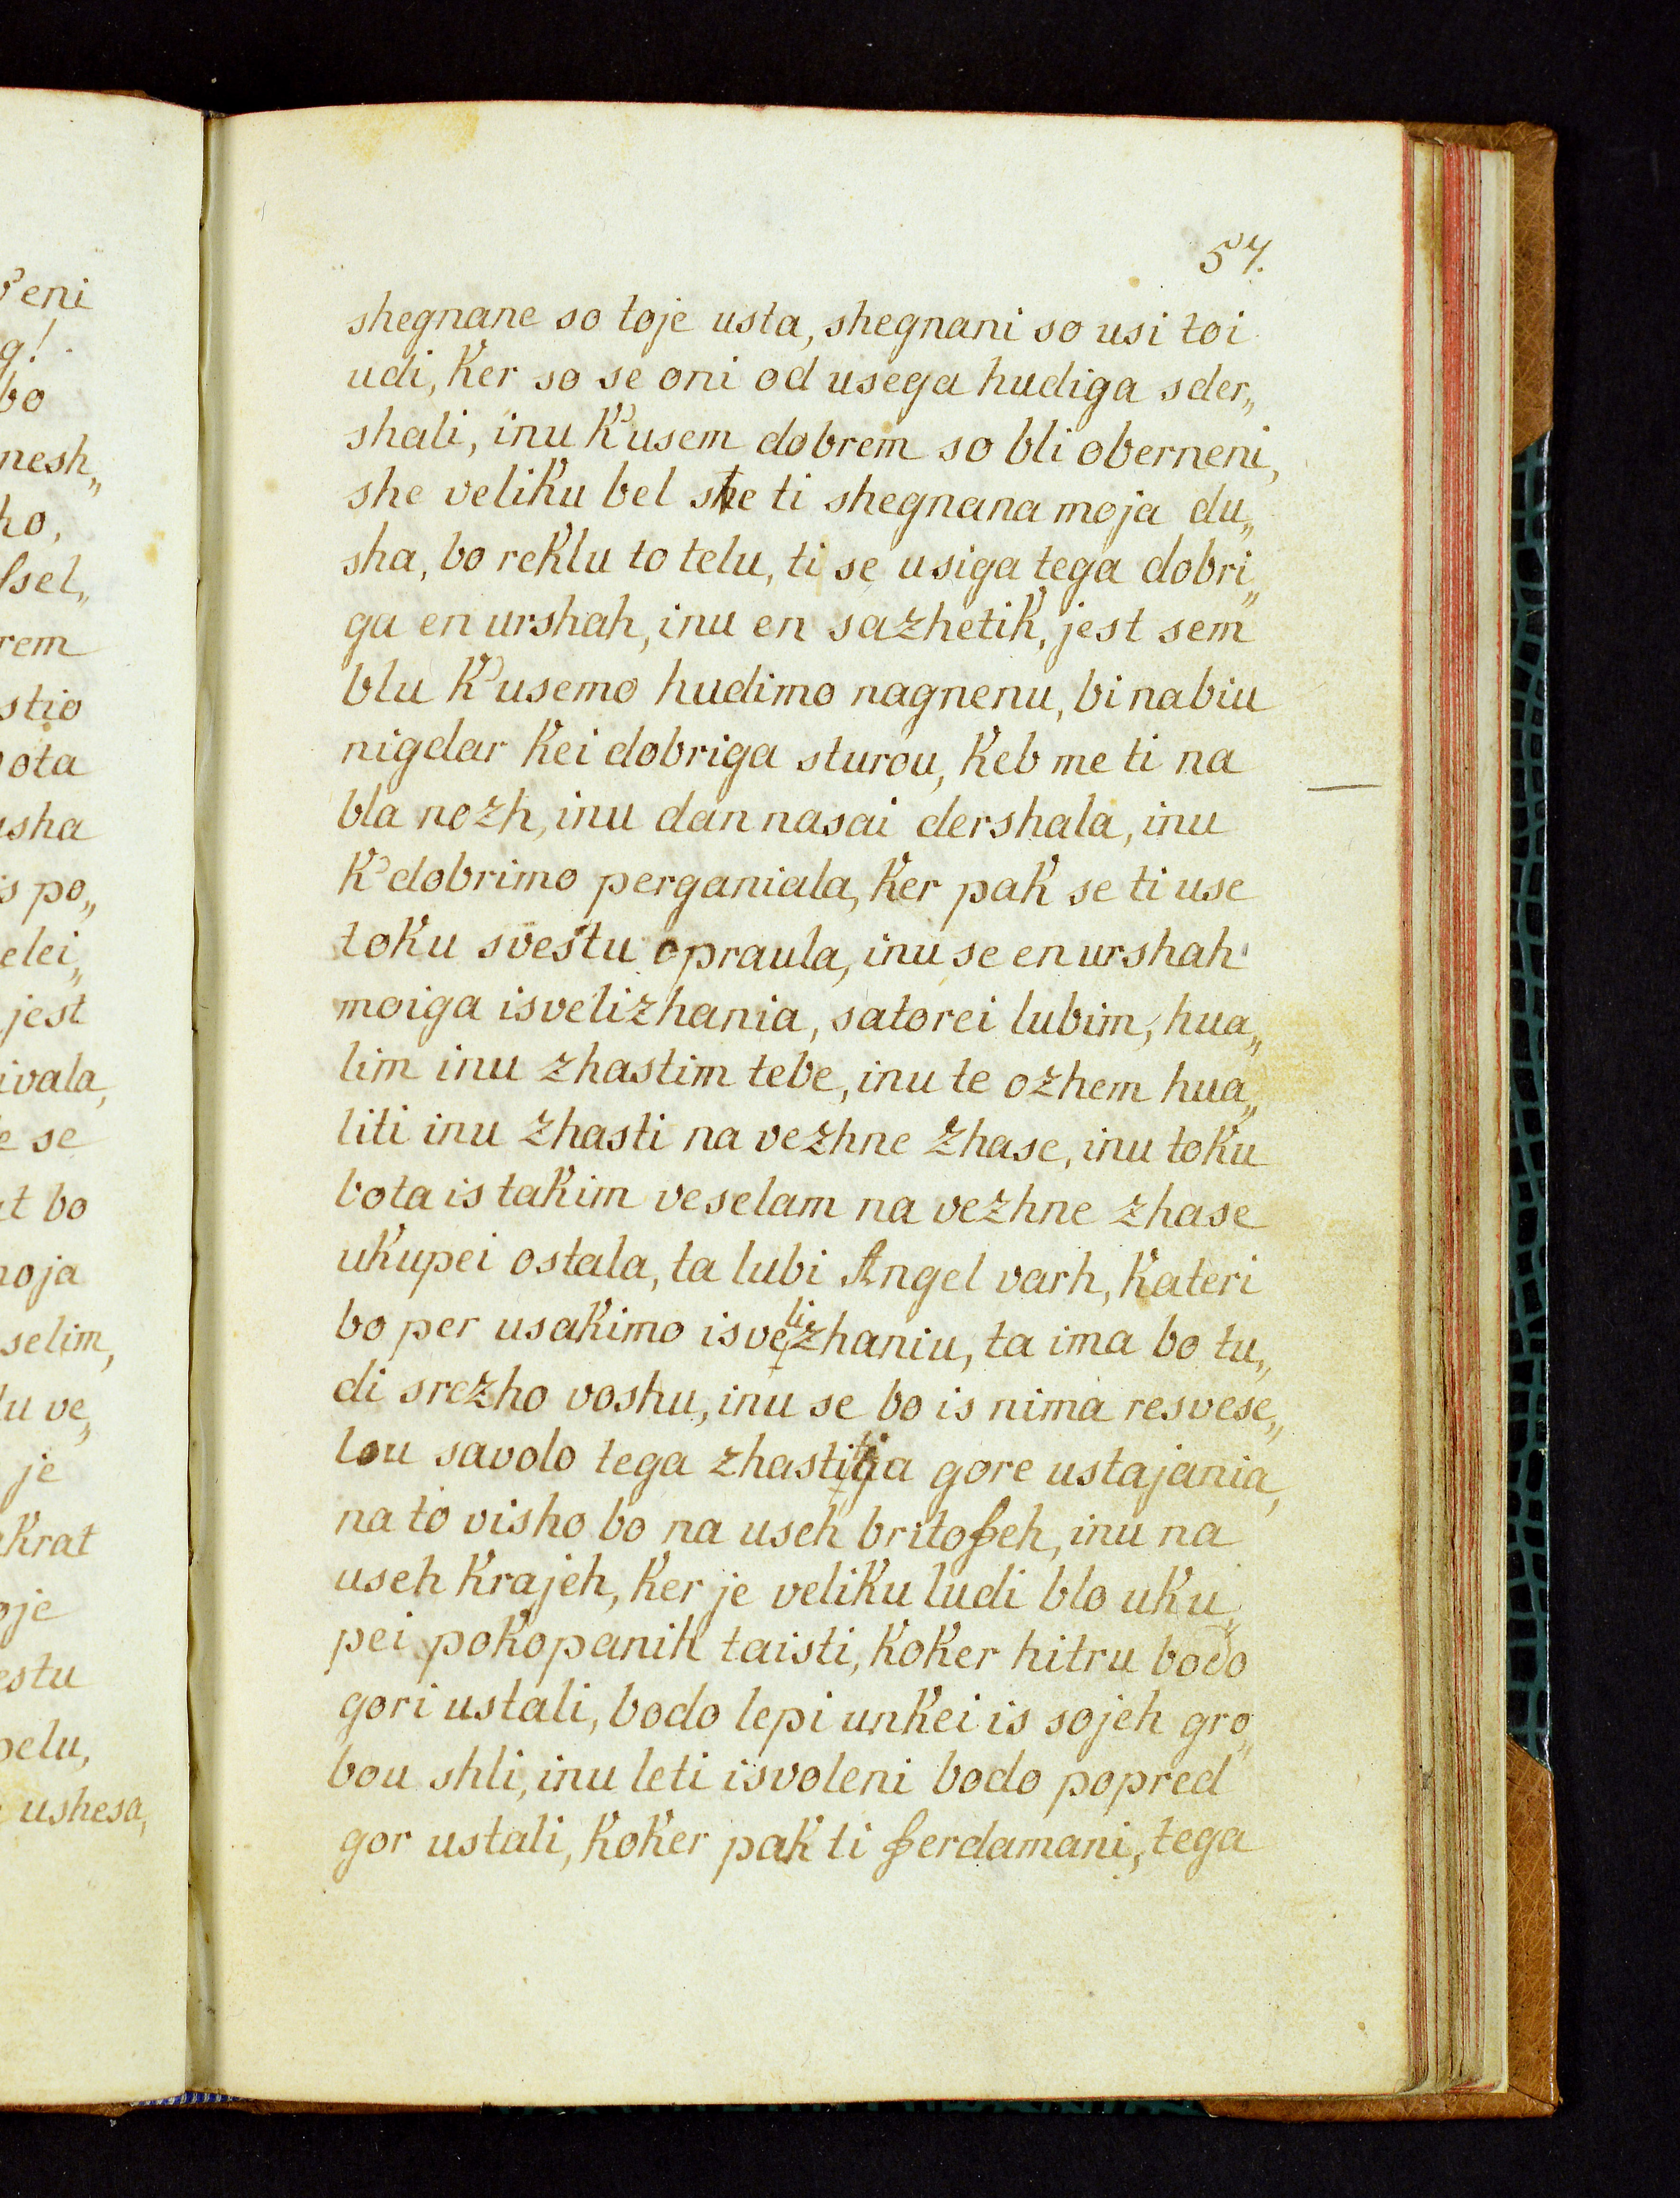 57.
shegnane so toje usta, shegnani so usi toi
udi, ker so se oni od usega hudiga sder„
shali, inu k'usem dobrem so bli oberneni,
she veliku bel ste ti shegnana moja du„
sha, bo reklu to telu, ti se usiga tega dobri„
ga en urshah, inu en sazhetik, jest sem
blu k'usemo hudimo nagnenu, bi nabiu
nigdar kei dobriga sturou, keb me ti na
bla nozh, inu dan nasai dershala, inu
k'dobrimo perganiala, ker pak se ti use
toku svestu opraula, inu se en urshah
moiga isvelizhania, satorei lubim, hua„
lim inu zhastim tebe, inu te ozhem hua„
liti inu zhasti na vezhne zhase, inu toku
bota is takim veselam na vezhne zhase
ukupei ostala, ta lubi Angel varh, kateri
bo per usakimo isvelizhaniu, ta ima bo tu„
di srezho voshu, inu se bo is nima resvese„
lou savolo tega zhastitiga gore ustajania,
na to visho bo na useh britofseh, inu na
useh krajeh, ker je veliku ludi blo uku„
pei pokopanih taisti, koker hitru bodo
gori ustali, bodo lepi unkei is sojeh gro„
bou shli, inu leti isvoleni bodo popred
gor ustali, koker pak ti ferdamani, tega
eni
g!
bo
nesh„
ho,
sel„
rem
stio
ota
sha
s po„
elei„
jest
ivala,
e se
t bo
oja
selim,
lu ve„
je
krat
oje
estu
pelu,
ushesa,